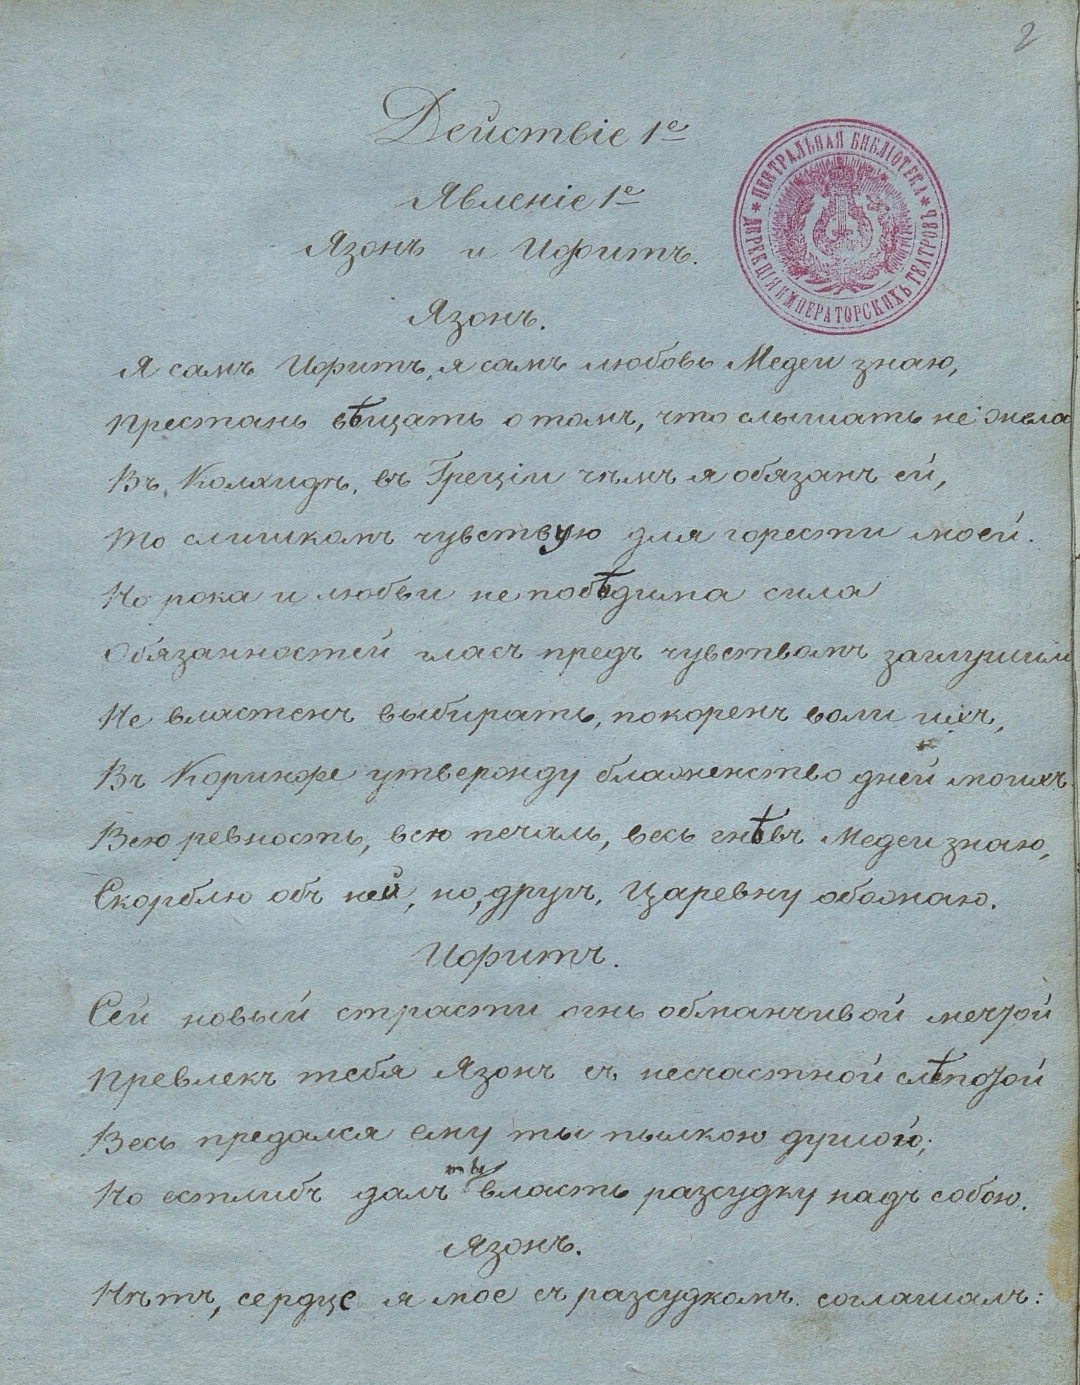 2
Действіе 1е
Явленіе 1е
Язонъ и Ифитъ.
ЦЕНТРАЛЬНАЯ БИБЛІОТЕКА * ДИРЕКЦІИ ИМПЕРАТОРСКИХЪ ТЕАТРОВЪ *
Язонъ.
Я самъ Ифитъ, я самъ любовь Медеи знаю,
Престань вѣщать о томъ, что слышать не жела
Въ Колхидѣ, въ Греціи чѣмъ я обязанъ ей,
То слишкомъ чувствую для горести моей.
Но рока и любви непобѣдима сила
Обязанностей гласъ предъ чувствомъ заглушил
Не властенъ выбирать, покоренъ воли ихъ,
Въ Коринфе утвержду блаженство дней моихъ
Всю ревность, всю печаль, весь гнѣвъ Медеи знаю,
Скорблю объ ней, но, другъ, Царевну обожаю.
Ифитъ.
Сей новый страсти огнь обманчивой мечтой
Превлекъ тебя Язонъ съ несчастной слѣпотой
Весь предался ему ты пылкою душою;
Но естлибъ далъ ты власть разсудку надъ собою.
Язонъ.
Нѣтъ, сердце я мое съ разсудкомъ соглашалъ: